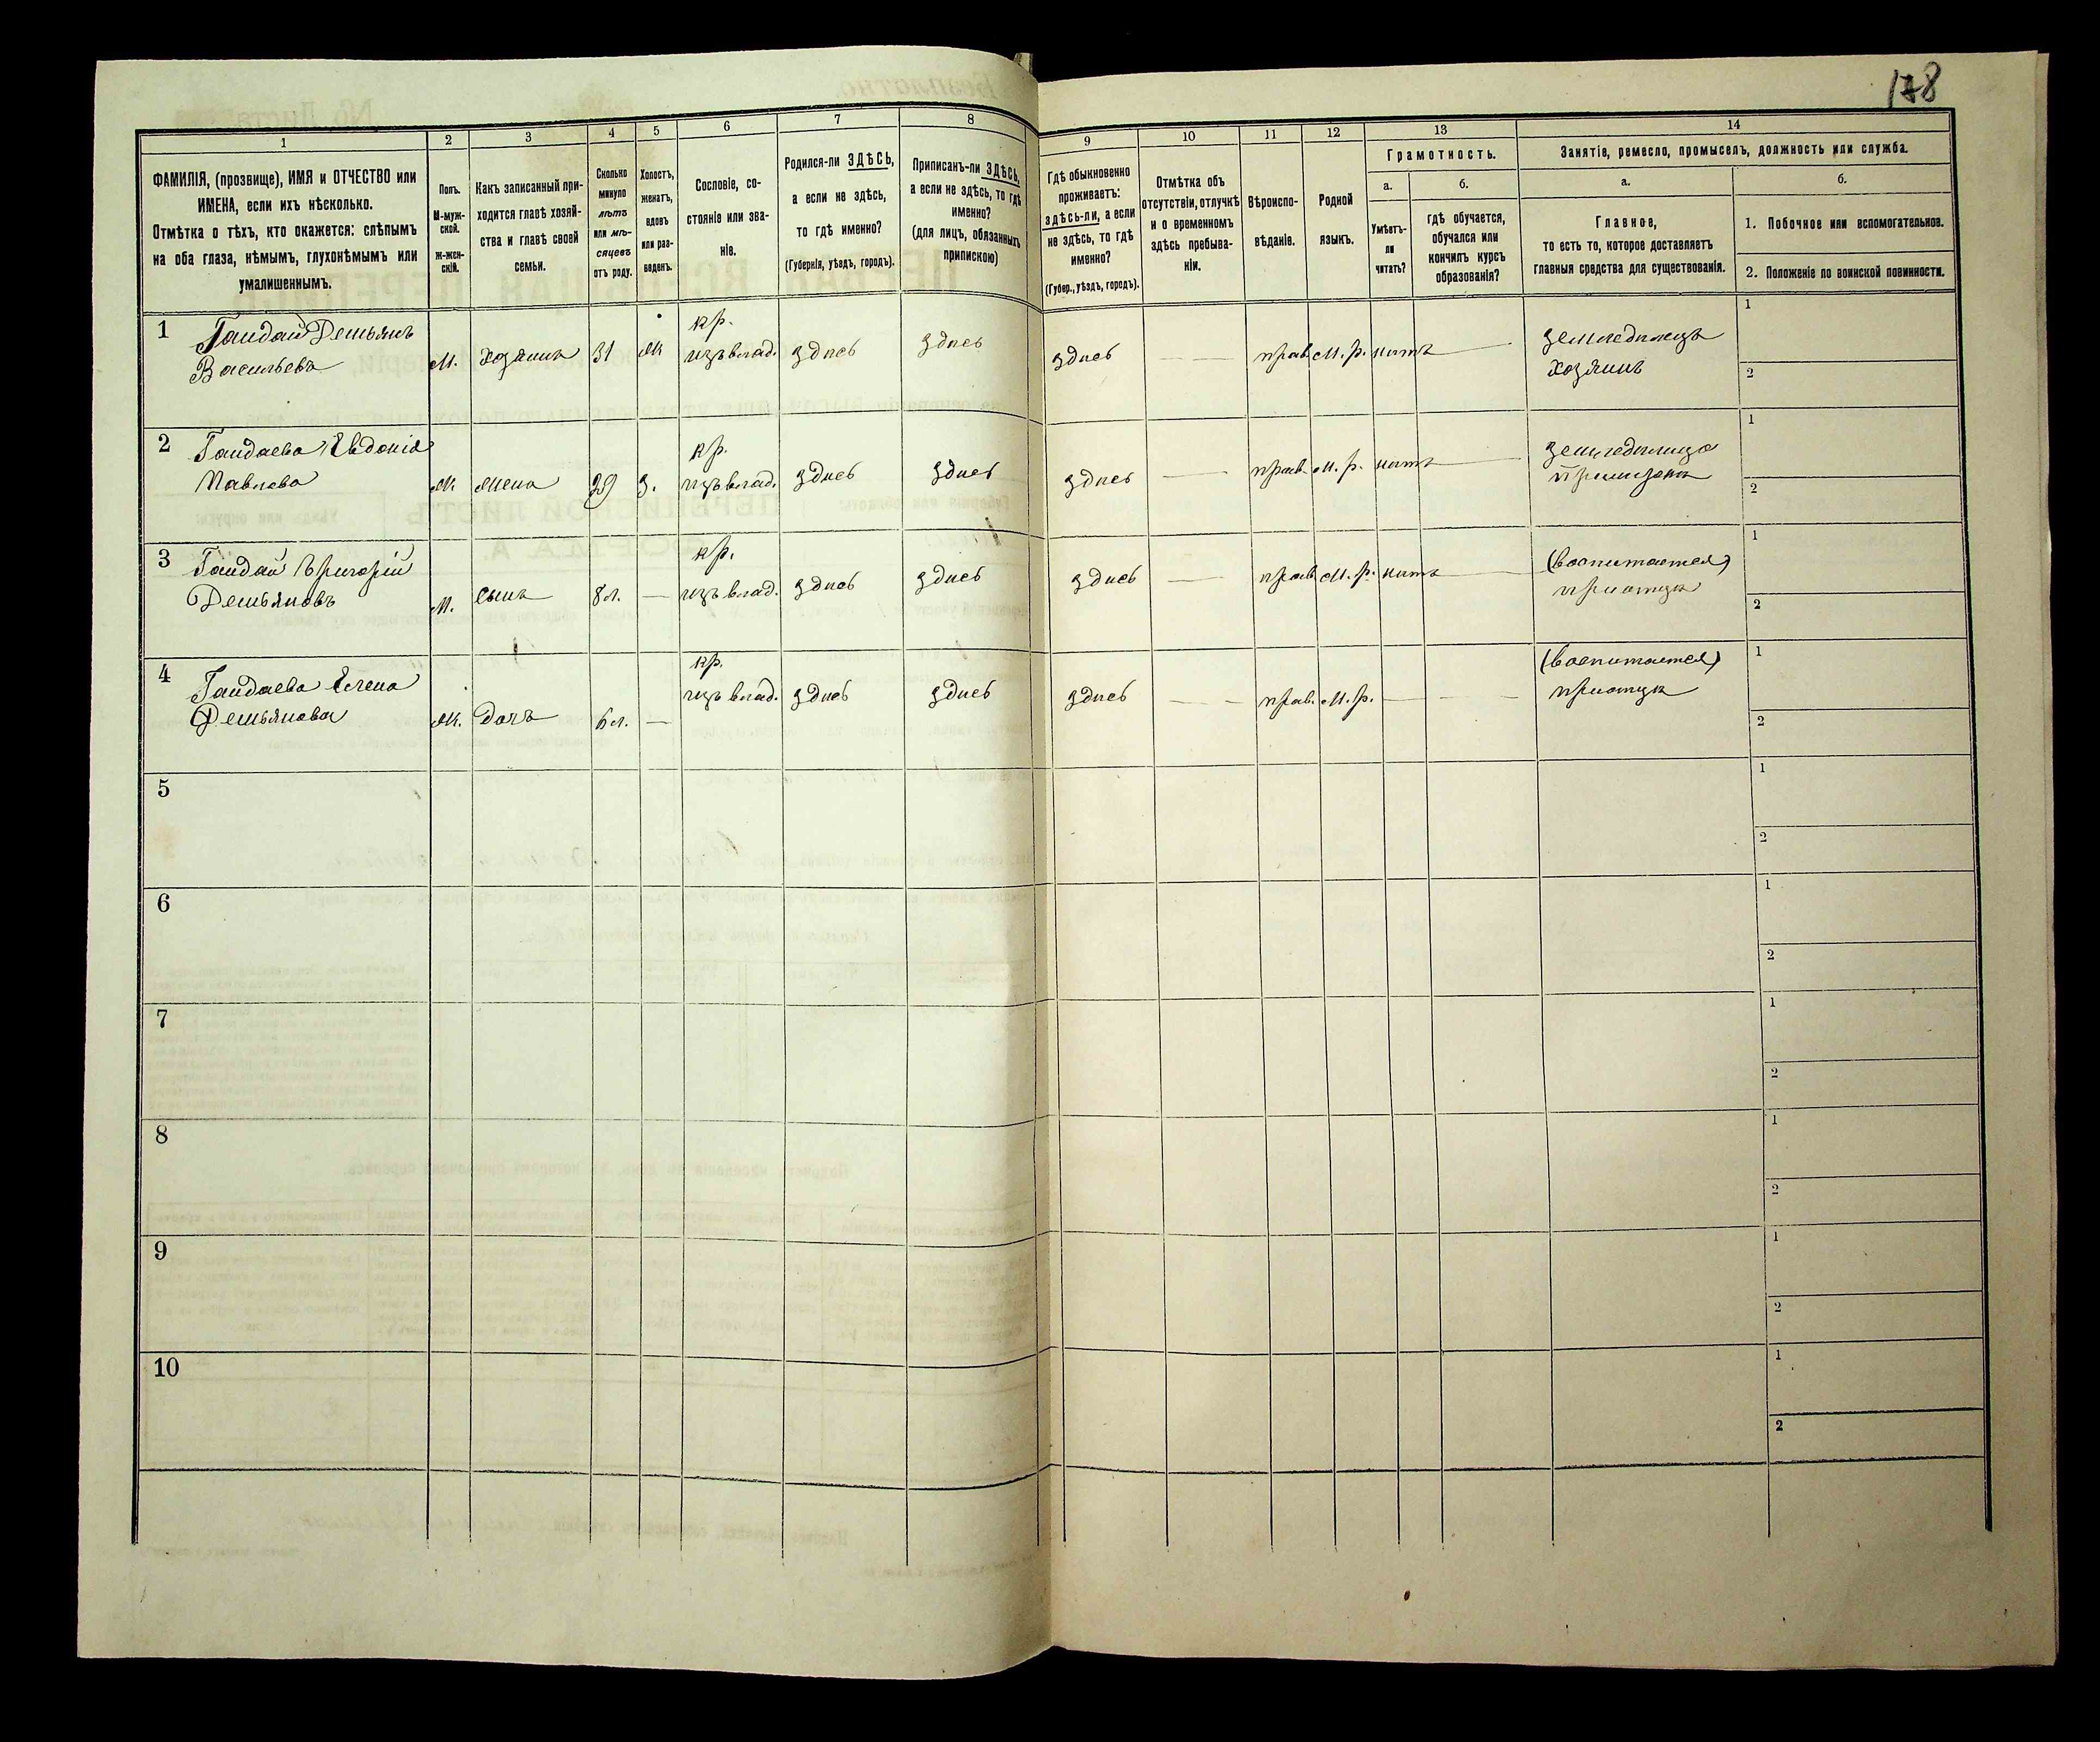 178
1 2 3 4 5 6 7 8 9 10 11 12 13 14
ФАМИЛІЯ, (прозвище), ИМЯ и ОТЧЕСТВО или
ИМЕНА, если ихъ нѣсколько.
Отмѣтка о тѣхъ, кто окажется: слѣпымъ
на оба глаза, нѣмымъ, глухонѣмымъ или
умалишеннымъ.
Полъ.
М-муж-
ской.
ж-жен-
скій.
Какъ записанный при-
ходится главѣ хозяй-
ства и главѣ своей
семьи.
Сколько
минуло
лѣтъ
или мѣ-
сяцевъ
отъ роду.
Холостъ,
женатъ,
вдовъ
или раз-
веденъ.
Сословіе, со-
стояніе или зва-
ніе.
Родился-ли ЗДѢСЬ,
а если не здѣсь,
то гдѣ именно?
(Губернія, уѣздъ, городъ).
Приписанъ-ли ЗДѢСЬ,
а если не здѣсь, то гдѣ
именно?
(для лицъ, обязанныхъ
припискою)
Гдѣ обыкновенно
проживаетъ:
здѣсь-ли, а если
не здѣсь, то гдѣ
именно?
(Губер., уѣздъ, городъ).
Отмѣтка объ
отсутствіи, отлучкѣ
и о временномъ
здѣсь пребыва-
ніи.
Вѣроиспо-
вѣданіе.
Родной
языкъ.
Грамотность.
а. б.
Умѣетъ-
ли
читать?
гдѣ обучается,
обучался или
кончилъ курсъ
образованія?
Занятіе, ремесло, промыселъ, должность или служба.
а. б.
Главное,
то есть то, которое доставляетъ
главныя средства для существованія.
1. Побочное или вспомогательное.
2. Положеніе по воинской повинности.
1 Гандай Демьянъ
Васильевъ
М. хозяинъ 31 ж
кр.
изъ влад. здпсь здпсь здпсь — — прав. М. р. нитъ —
земледплецъ
хозяинъ
1
2
2 Гандаева Евдокія
Павлова
ж жена 29 з.
кр.
изъ влад. здпсь здпсь здпсь — прав. М. р. нитъ —
1
2
3 Гандай Григорій
Демьяновъ
М. сынъ 8 л. —
кр.
изъ влад. здпсь здпсь здпсь — прав. М. р. нитъ —
(воспитается)
приотцѣ
1
2
4 Гандаева Елена
Демьянова
ж. дочъ 6 л. —
кр.
изъ влад. здпсь здпсь здпсь — — прав. М. р. — — —
(воспитается)
приотцѣ
1
2
5
1
2
6
1
2
7
1
2
8
1
2
9
1
2
10
1
2